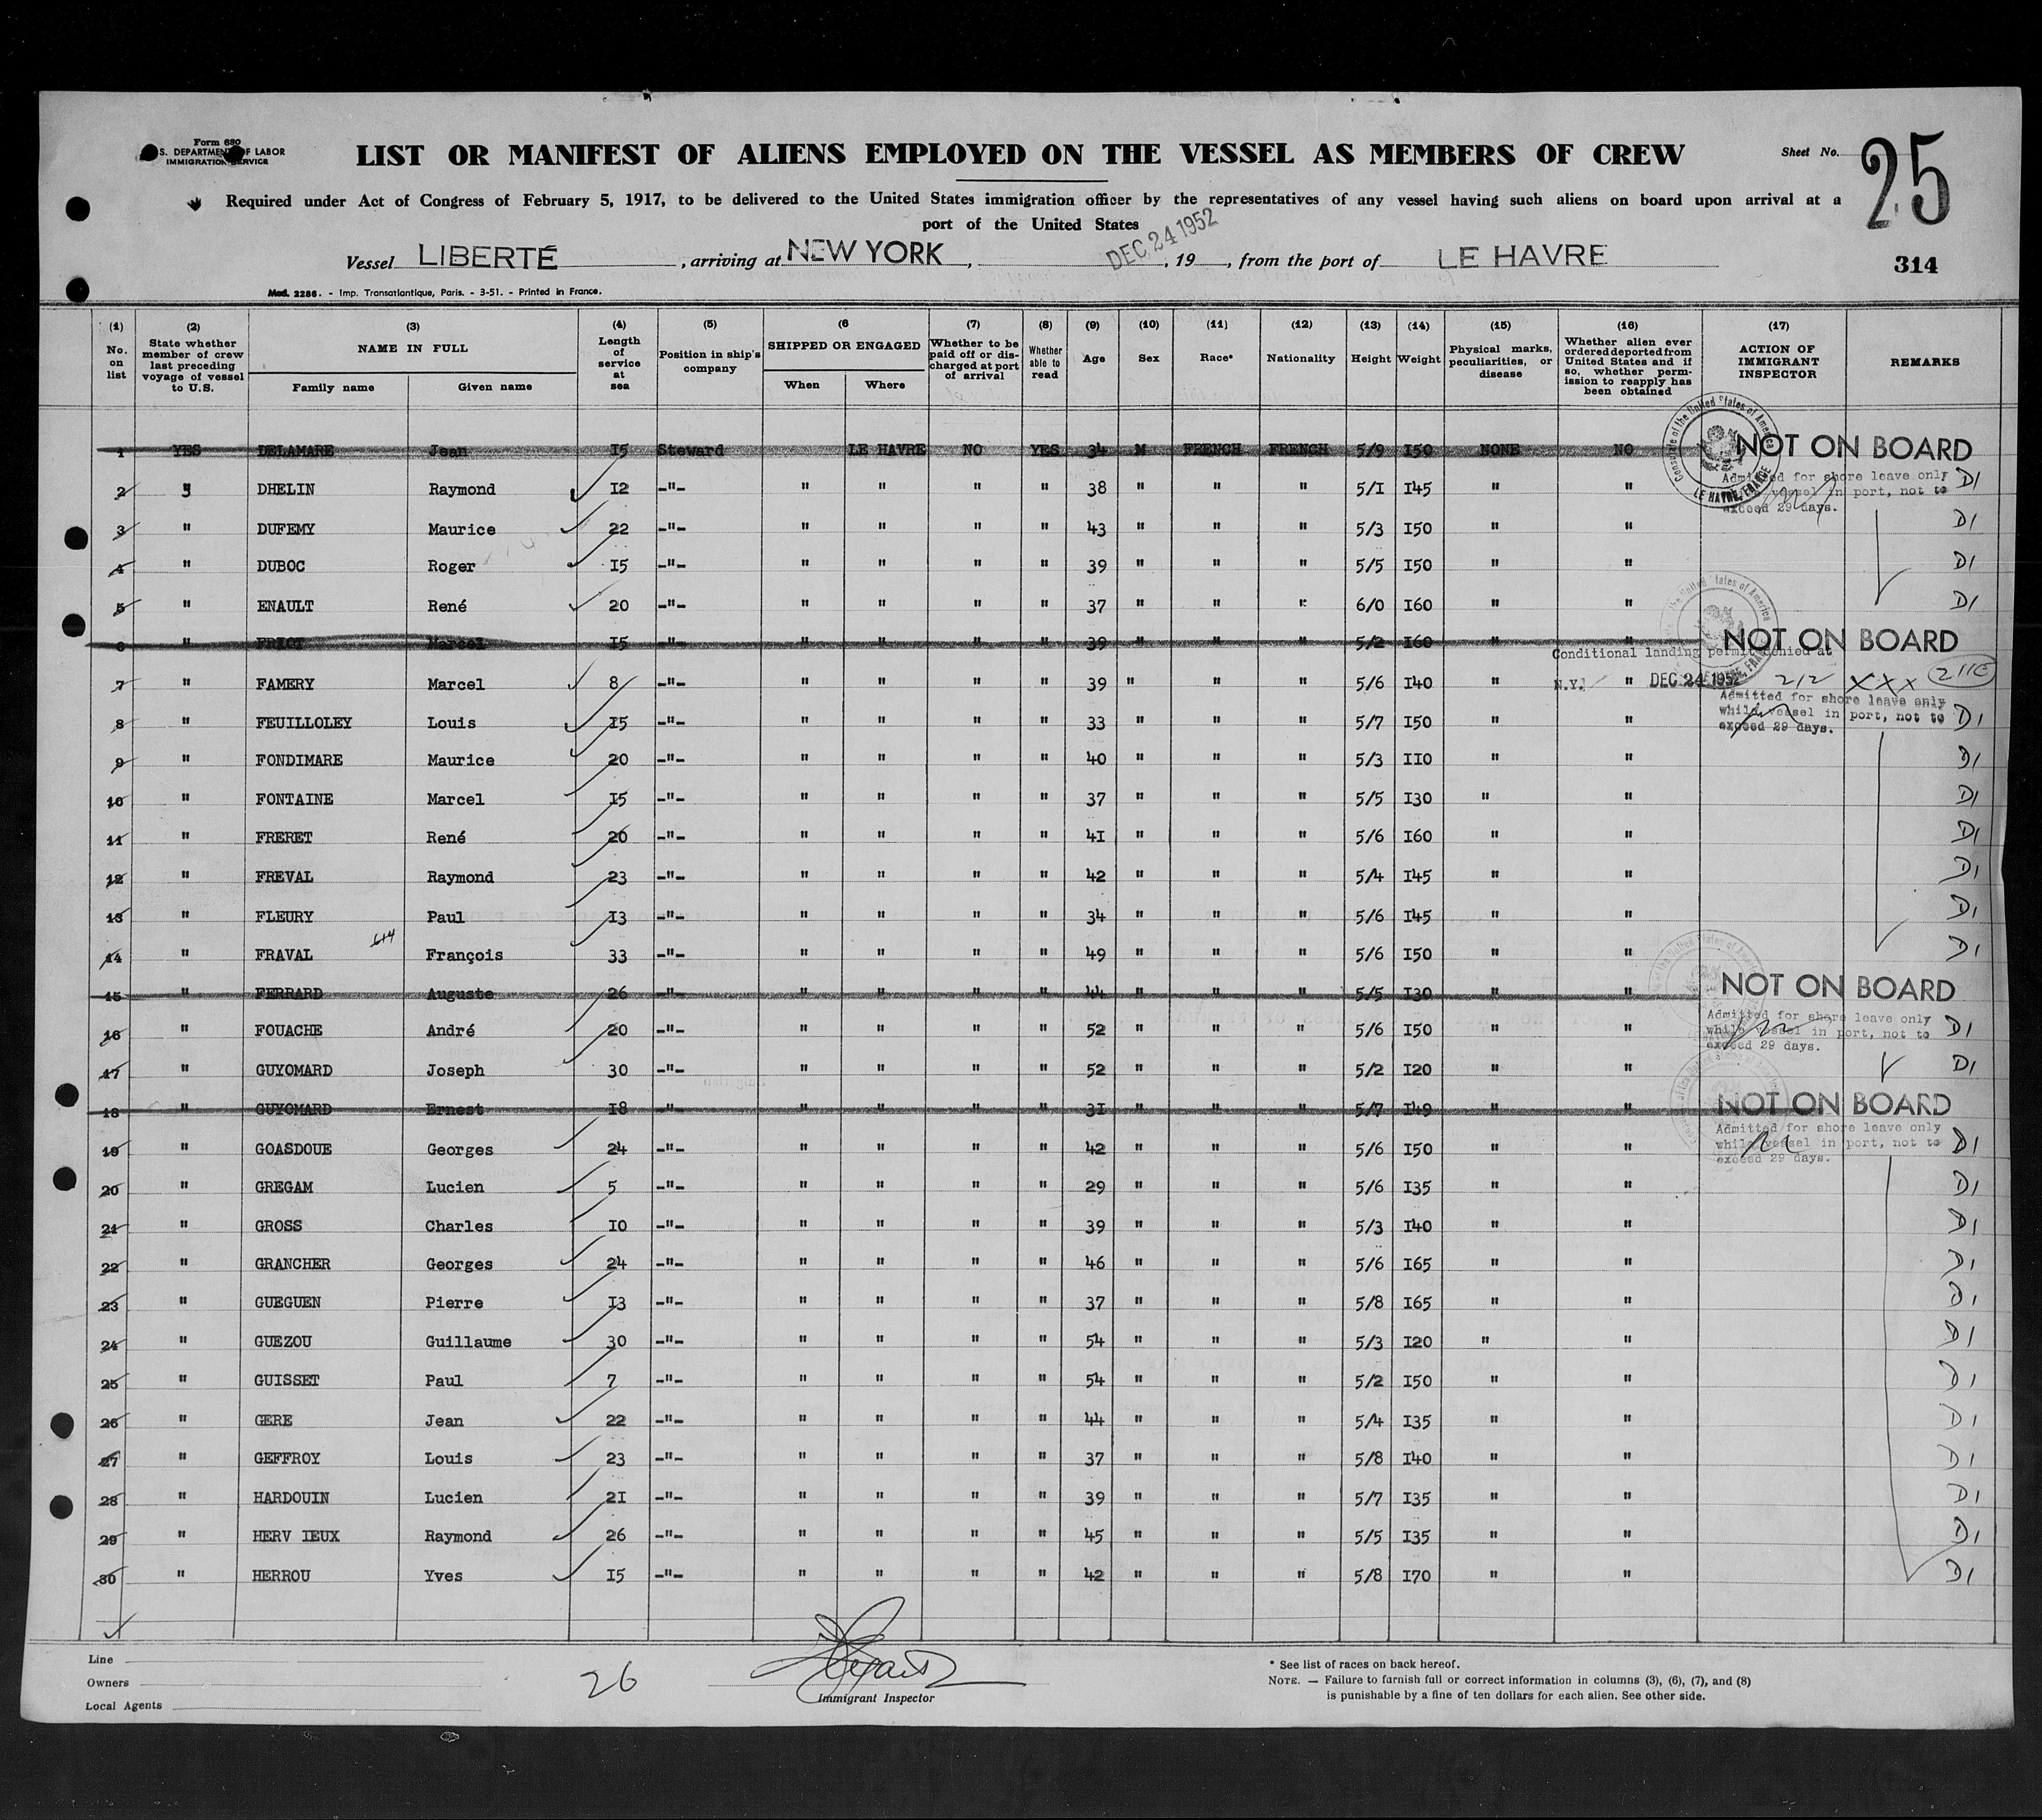 Form 680
S. DEPARTMENT OF LABOR
IMMIGRATION SERVICE
LIST OR MANIFEST OF ALIENS EMPLOYED ON THE VESSEL AS MEMBERS OF CREW
Sheet No. 25
Required under Act of Congress of February 5, 1917, to be delivered to the United States immigration officer by the representatives of any vessel having such aliens on board upon arrival at a
port of the United States
Vessel LIBERTÉ, arriving at NEW YORK, DEC 24 1952, 19, from the port of LE HAVRE
314
Mod. 2286. - Imp. Transatlantique, Paris. - 3-51. - Printed in France.
(1) No. on list (2) State whether member of crew last preceding voyage of vessel to U.S. (3) NAME IN FULL Family name Given name (4) Length of service at sea (5) Position in ship's company (6 SHIPPED OR ENGAGED When Where (7) Whether to be paid off or discharged at port of arrival (8) Whether able to read (9) Age (10) Sex (11) Race* (12) Nationality (13) Height (14) Weight (15) Physical marks, peculiarities, or disease (16) Whether alien ever ordered deported from United States and if so, whether permission to reapply has been obtained (17) ACTION OF IMMIGRANT INSPECTOR REMARKS
1 YES DELAMARE Jean 15 Steward LE HAVRE NO YES 34 M FRENCH FRENCH 5/9 150 NONE NO NOT ON BOARD
2 " DHELIN Raymond 12 -"- " " " " 38 " " " 5/1 145 " " Admitted for shore leave only while vessel in port, not to exceed 29 days. D1
3 " DUFEMY Maurice 22 -"- " " " " 43 " " " 5/3 150 " " D1
4 " DUBOC Roger 15 -"- " " " " 39 " " " 5/5 150 " " D1
5 " ENAULT René 20 -"- " " " " 37 " " " 6/0 160 " " D1
6 " FRIOT Marcel 15 -"- " " " " 39 " " " 5/2 160 " " NOT ON BOARD
Conditional landing permit denied at
7 " FAMERY Marcel 8 -"- " " " " 39 " " " 5/6 140 " N.Y. " DEC 24 1952 212 XXX 211E
8 " FEUILLOLEY Louis 15 -"- " " " " 33 " " " 5/7 150 " " Admitted for shore leave only while vessel in port, not to exceed 29 days. D1
9 " FONDIMARE Maurice 20 -"- " " " " 40 " " " 5/3 110 " " D1
10 " FONTAINE Marcel 15 -"- " " " " 37 " " " 5/5 130 " " D1
11 " FRERET René 20 -"- " " " " 41 " " " 5/6 160 " " D1
12 " FREVAL Raymond 23 -"- " " " " 42 " " " 5/4 145 " " D1
13 " FLEURY Paul 13 -"- " " " " 34 " " " 5/6 145 " " D1
14 " FRAVAL 614 François 33 -"- " " " " 49 " " " 5/6 150 " " D1
15 " FERRARD Auguste 26 -"- " " " " 44 " " " 5/5 130 " " NOT ON BOARD
16 " FOUACHE André 20 -"- " " " " 52 " " " 5/6 150 " " Admitted for shore leave only while vessel in port, not to exceed 29 days. D1
17 " GUYOMARD Joseph 30 -"- " " " " 52 " " " 5/2 120 " " D1
18 " GUYOMARD Ernest 18 -"- " " " " 31 " " " 5/7 149 " " NOT ON BOARD
19 " GOASDOUE Georges 24 -"- " " " " 42 " " " 5/6 150 " " Admitted for shore leave only while vessel in port, not to exceed 29 days. D1
20 " GREGAM Lucien 5 -"- " " " " 29 " " " 5/6 135 " " D1
21 " GROSS Charles 10 -"- " " " " 39 " " " 5/3 140 " " D1
22 " GRANCHER Georges 24 -"- " " " " 46 " " " 5/6 165 " " D1
23 " GUEGUEN Pierre 13 -"- " " " " 37 " " " 5/8 165 " " D1
24 " GUEZOU Guillaume 30 -"- " " " " 54 " " " 5/3 120 " " D1
25 " GUISSET Paul 7 -"- " " " " 54 " " " 5/2 150 " " D1
26 " GERE Jean 22 -"- " " " " 44 " " " 5/4 135 " " D1
27 " GEFFROY Louis 23 -"- " " " " 37 " " " 5/8 140 " " D1
28 " HARDOUIN Lucien 21 -"- " " " " 39 " " " 5/7 135 " " D1
29 " HERV IEUX Raymond 26 -"- " " " " 45 " " " 5/5 135 " " D1
30 " HERROU Yves 15 -"- " " " " 42 " " " 5/8 170 " " D1
Line
Owners
Local Agents
26
Immigrant Inspector
* See list of races on back hereof.
NOTE. — Failure to furnish full or correct information in columns (3), (6), (7), and (8)
is punishable by a fine of ten dollars for each alien. See other side.